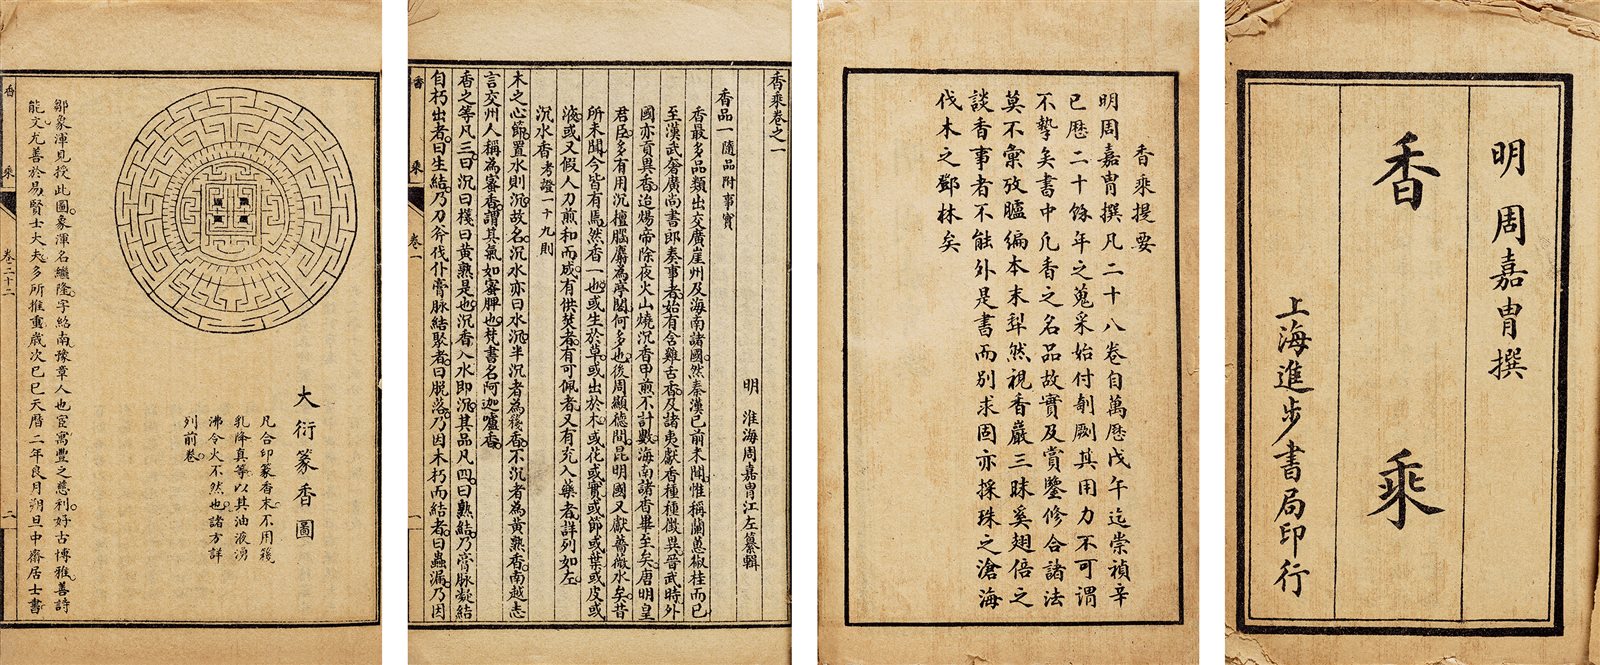 明 周嘉胄撰
香乘
上海進步書局印行
香乘提要
明周嘉胄撰凡二十八卷自萬厯戊午迄崇禎辛
已歷二十餘年之蒐采始付剞劂其用力不可謂
不摯矣書中凡香之名品故實及賞鑒修合諸法
莫不彙攷臚編本末犁然視香嚴三昧奚翅倍之
談香事者不能外是書而別求固亦採珠之滄海
伐木之鄧林矣
香乘卷之一
明 淮海周嘉胄江左纂輯
香品一隨品附事實
香最多品類出交廣崖州及海南諸國然秦漢已前未聞惟稱蘭蕙椒桂而已
至漢武奢廣尚書郎奏事者始有含雞舌香及諸夷獻香種種徵異晉武時外
國亦貢異香迨煬帝除夜火山燒沉香甲煎不計數海南諸香畢至矣唐明皇
君臣多有用沉檀腦麝為亭閣何多也後周顯德間昆明國又獻薔薇水矣昔
所未聞今皆有焉然香一也或生於草或出於木或花或實或節或葉或皮或
液或又假人刀煎和而成有供焚者有可佩者又有充入藥者詳列如左
沉水香考證一十九則
木之心節置水則沉故名沉水亦曰水沉半沉者為棧香不沉者為黃熟香南越志
言交州人稱為蜜香謂其氣如蜜脾也梵書名阿迦嚧香
香之等凡三曰沉曰棧曰黃熟是也沉香入水即沉其品凡四曰熟結乃膏脉凝結
自朽出者曰生結乃刀斧伐仆膏脉結聚者曰脫落乃因木朽而結者曰蟲漏乃因
香
乘
卷一
一
大衍篆香圖
凡合印篆香末不用棧
乳降真等以其油液湧
沸令火不然也諸方詳
列前卷
鄒象渾見授此圖象渾名繼隆字紹南豫章人也宦寓豐之慈利好古博雅善詩
能文尤善於易賢士大夫多所推重歲次己巳天曆二年良月朔旦中齋居士書
香
乘
卷二十二
二